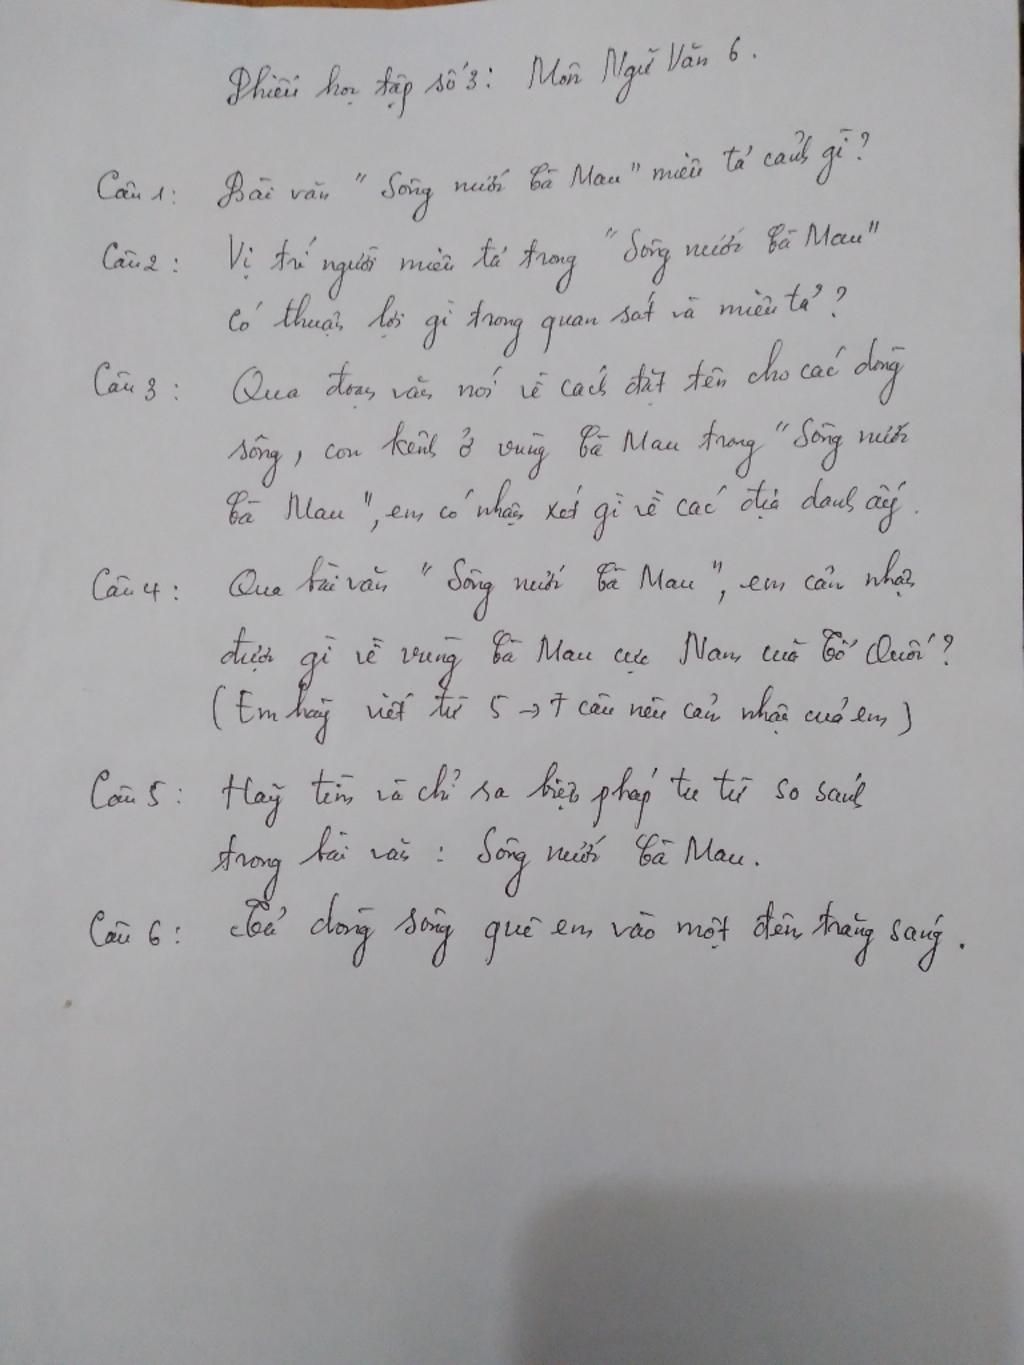 Phiếu học tập số 3: Môn Ngữ Văn 6.
Câu 1: Bài văn "Sông nước Cà Mau" miêu tả cảnh gì?
Câu 2: Vị trí người miêu tả trong "Sông nước Cà Mau"
có thuận lợi gì trong quan sát và miêu tả?
Câu 3: Qua đoạn văn nói về cách đặt tên cho các dòng
sông, con kênh ở vùng Cà Mau trong "Sông nước
Cà Mau", em có nhận xét gì về các địa danh ấy.
Câu 4: Qua bài văn "Sông nước Cà Mau", em cảm nhận
được gì về vùng Cà Mau cực Nam của Tổ Quốc?
(Em hãy viết từ 5 → 7 câu nêu cảm nhận của em)
Câu 5: Hãy tìm và chỉ ra biện pháp tu từ so sánh
trong bài văn: Sông nước Cà Mau.
Câu 6: Tả dòng sông quê em vào một đêm trăng sáng.